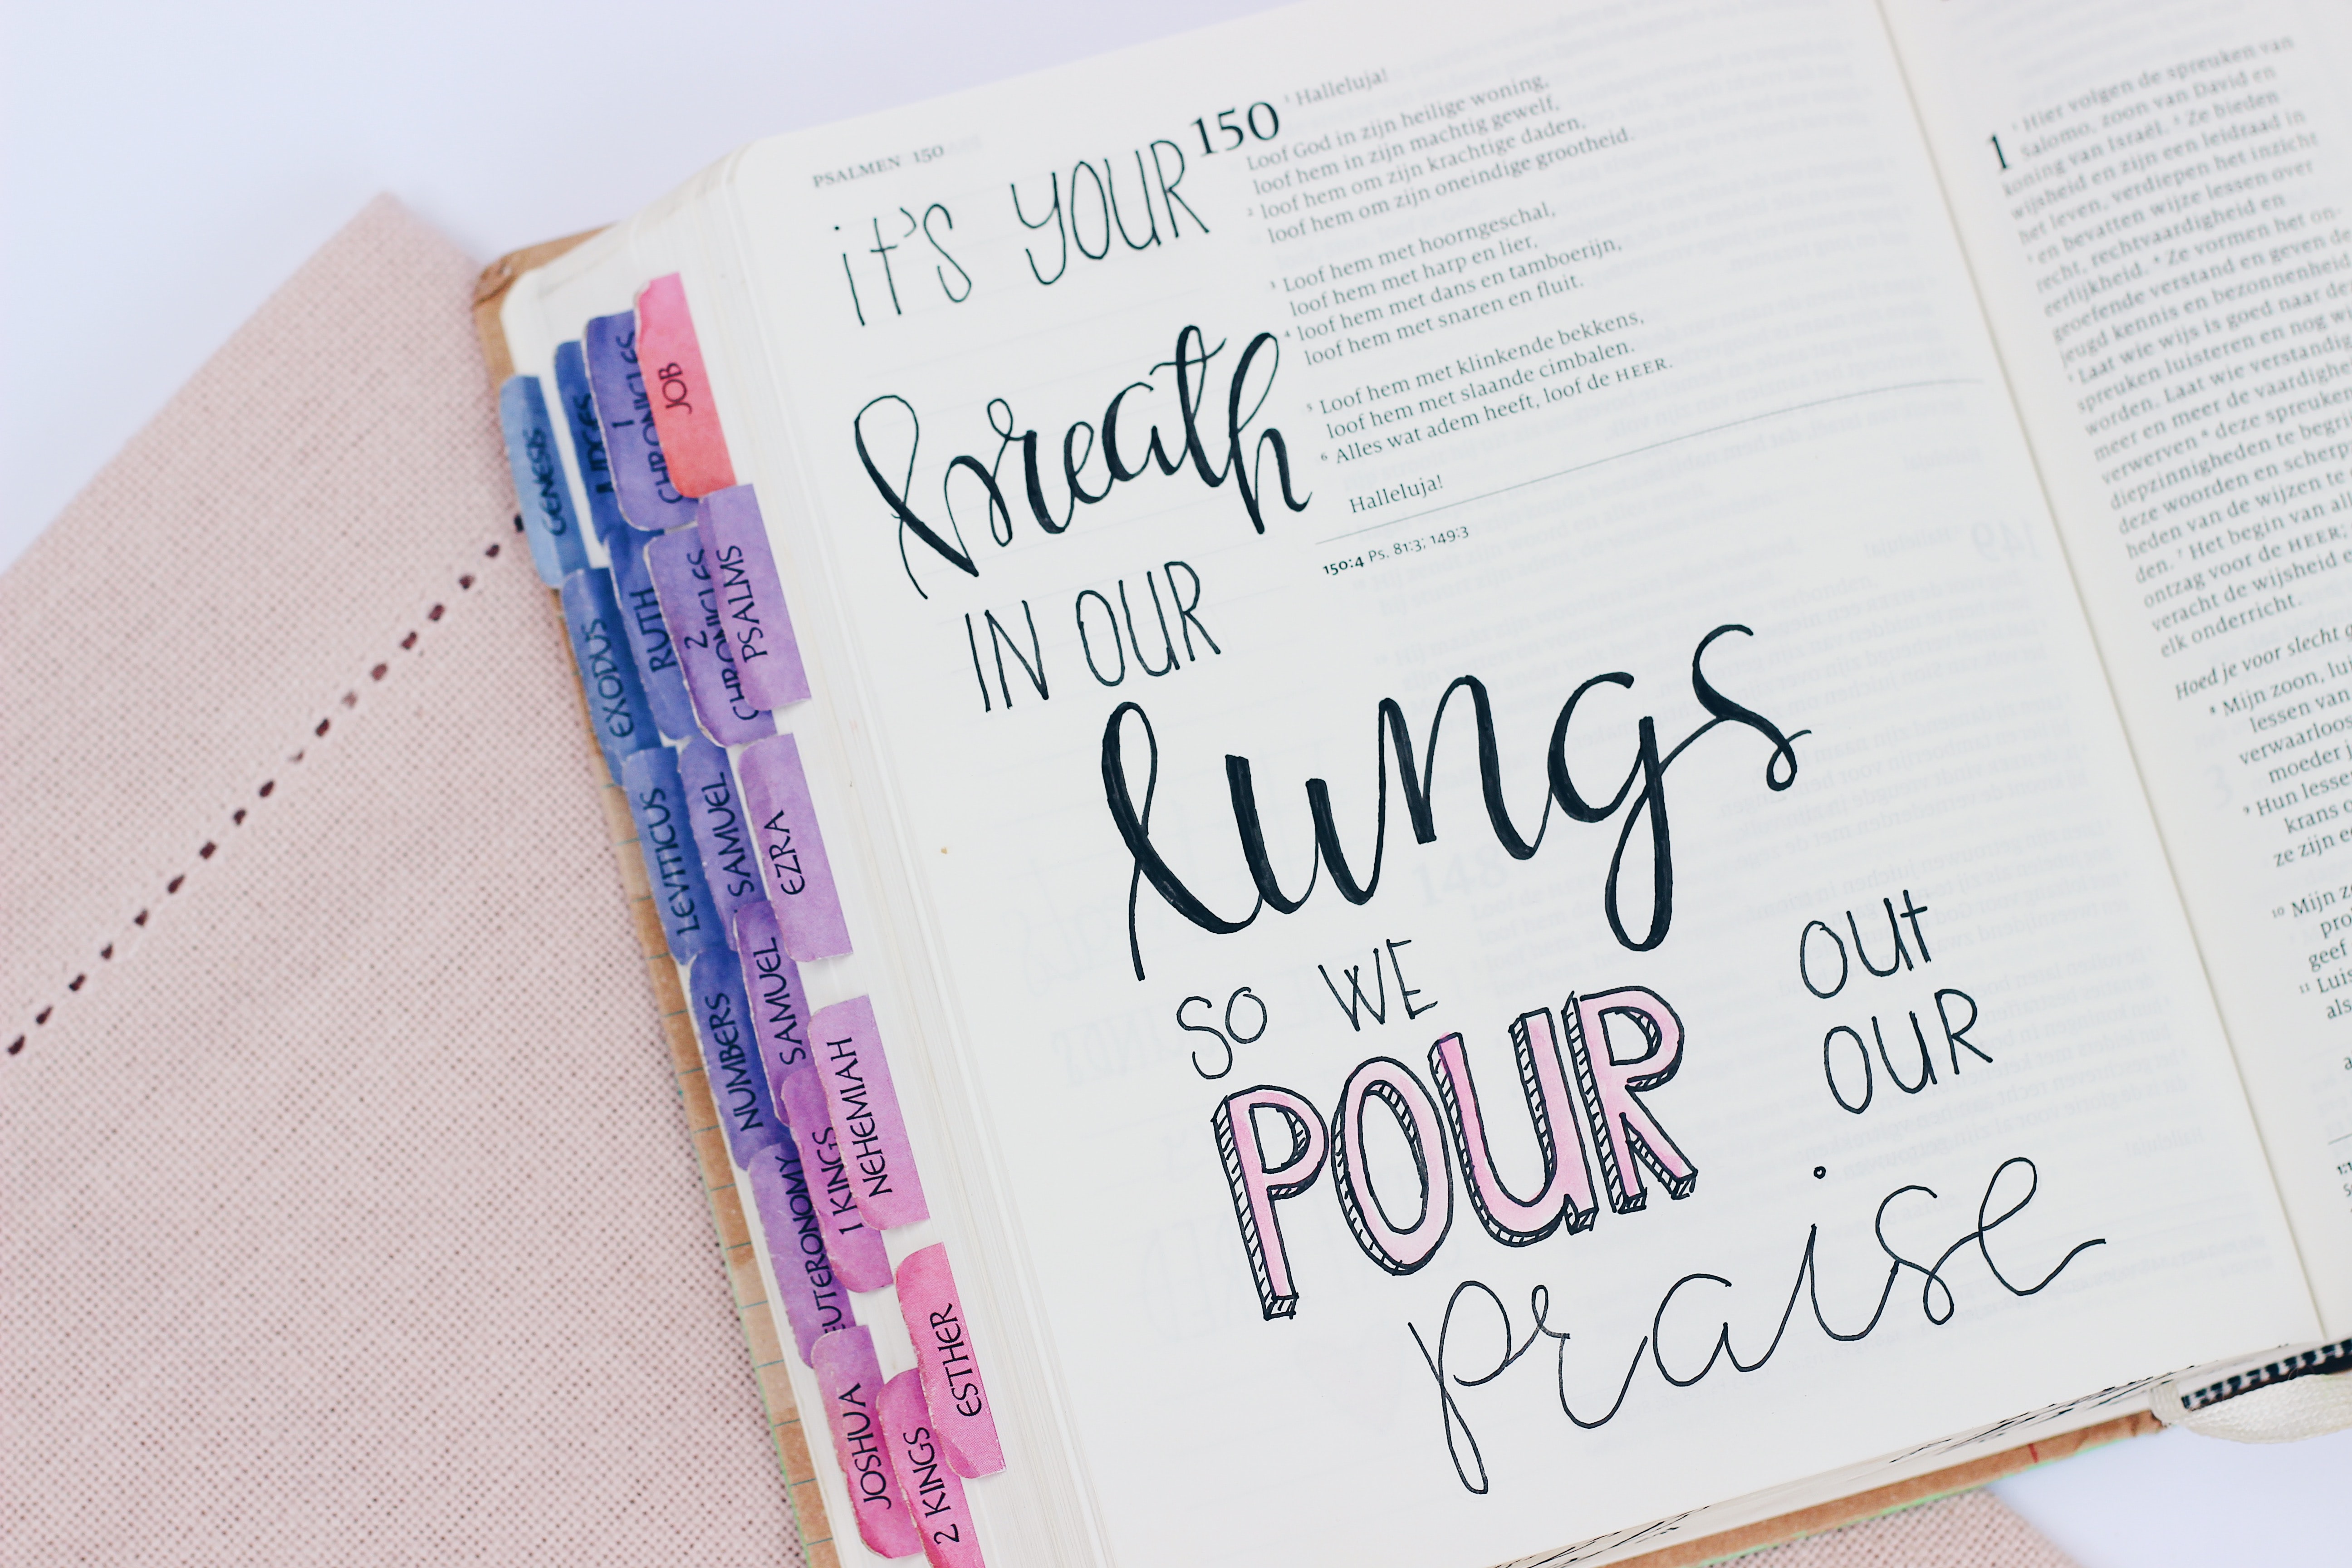 PSALMEN 150
150
¹ Halleluja!
Loof God in zijn heilige woning,
loof hem in zijn machtig gewelf,
² loof hem om zijn krachtige daden,
loof hem om zijn oneindige grootheid.
³ Loof hem met hoorngeschal,
loof hem met harp en lier,
⁴ loof hem met dans en tamboerijn,
loof hem met snaren en fluit.
⁵ Loof hem met klinkende bekkens,
loof hem met slaande cimbalen.
⁶ Alles wat adem heeft, loof de HEER.
Halleluja!
150:4 Ps. 81:3; 149:3
it's YOUR
breath
IN OUR
lungs
SO WE
POUR
OUt
OUR
praise
GENESIS
EXODUS
LEVITICUS
NUMBERS
JOSHUA
RUTH
SAMUEL
SAMUEL
1 KINGS
2 KINGS
1 CHRONICLES
2 CHRONICLES
EZRA
NEHEMIAH
ESTHER
JOB
PSALMS
1
¹ Hier volgen de spreuken van
Salomo, zoon van David en
koning van Israël. ² Ze bieden
wijsheid en zijn een leidraad in
het leven, verdiepen het inzicht
³ en bevatten wijze lessen over
recht, rechtvaardigheid en
eerlijkheid. ⁴ Ze vormen het on-
geoefende verstand en geven de
jeugd kennis en bezonnenheid
⁵ Laat wie wijs is goed naar de
spreuken luisteren en nog
worden. Laat wie verstandig
meer en meer de vaardighe
verwerven ⁶ deze spreuken
diepzinnigheden te begri
deze woorden en scherp
heden van de wijzen te
den. ⁷ Het begin van al
ontzag voor de HEER.
veracht de wijsheid e
elk onderricht.
Hoed je voor slecht
⁸ Mijn zoon, lui
lessen van
verwaarloos
moeder j
⁹ Hun lesse
krans
ze zijn
¹⁰ Mijn
geef
¹¹ Luis
als